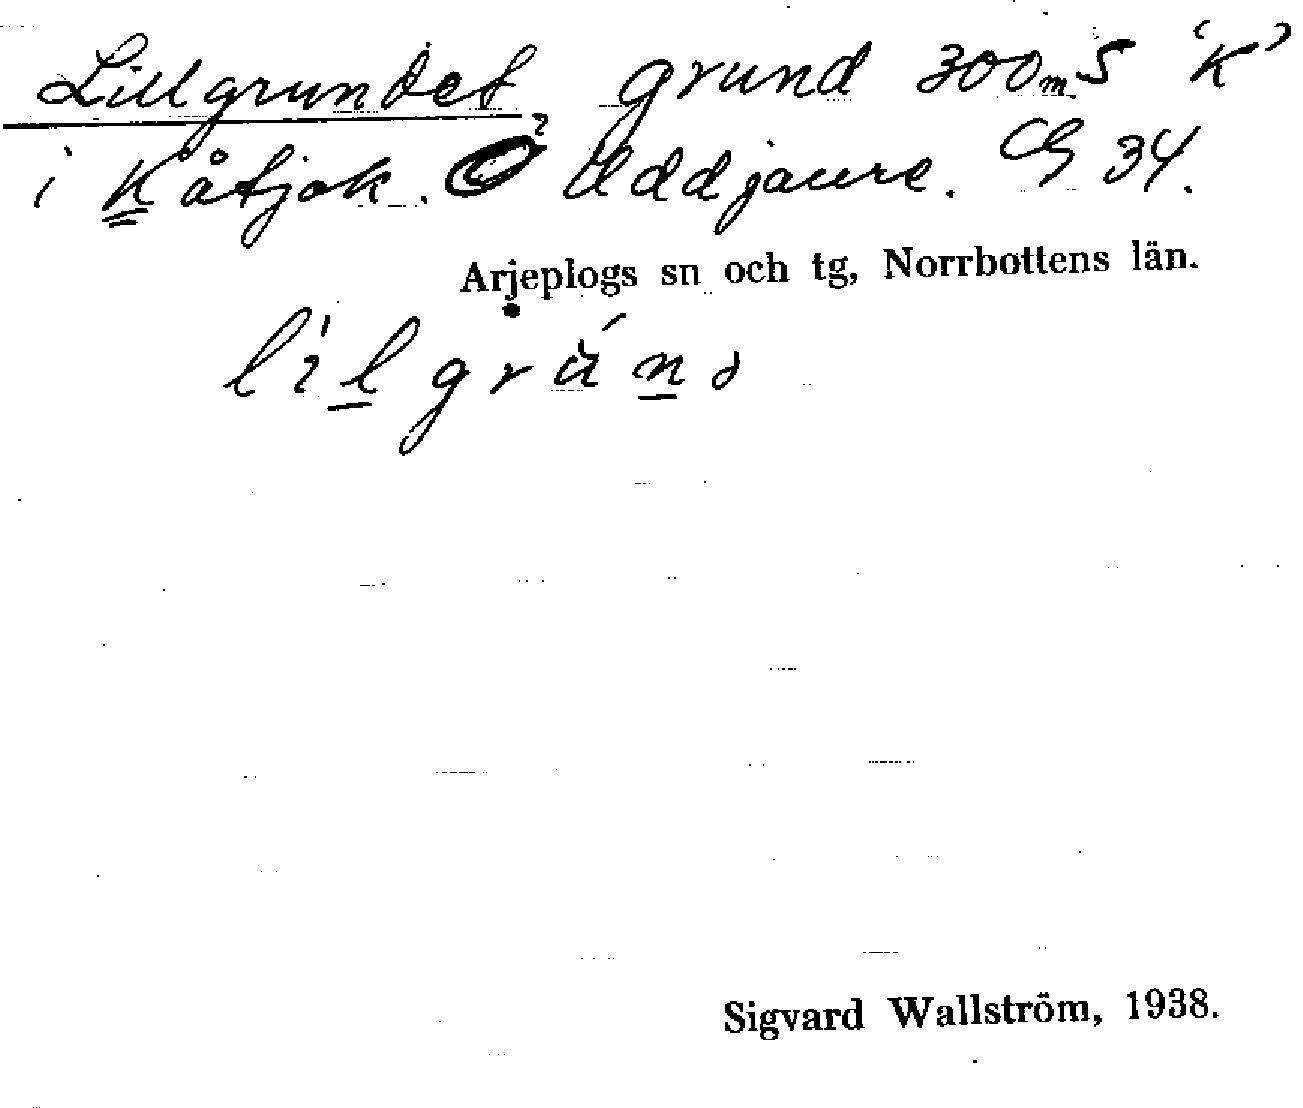 Lillgrundet, grund 300 m S 'K'
i Kåtjok. Uddjaure. CG 34.
Arjeplogs sn och tg, Norrbottens län.
Sigvard Wallström, 1938.